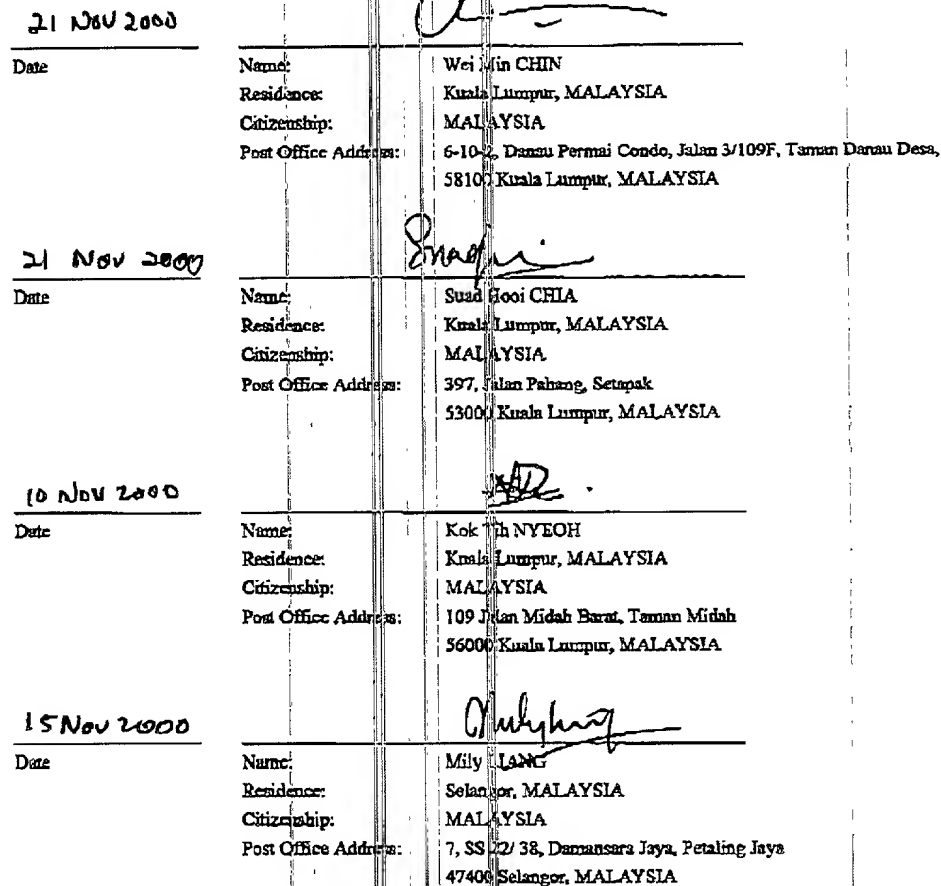 21 NOV 2000
Date
Name: Wei Min CHIN
Residence: Kuala Lumpur, MALAYSIA
Citizenship: MALAYSIA
Post Office Address: 6-10-2, Danau Permai Condo, Jalan 3/109F, Taman Danau Desa,
58100 Kuala Lumpur, MALAYSIA
21 Nov 2000
Date
Name: Suad Hooi CHIA
Residence: Kuala Lumpur, MALAYSIA
Citizenship: MALAYSIA
Post Office Address: 397, Jalan Pahang, Setapak
53000 Kuala Lumpur, MALAYSIA
10 NOV 2000
Date
Name: Kok Tih NYEOH
Residence: Kuala Lumpur, MALAYSIA
Citizenship: MALAYSIA
Post Office Address: 109 Jalan Midah Barat, Taman Midah
56000 Kuala Lumpur, MALAYSIA
15 Nov 2000
Date
Name: Mily LIANG
Residence: Selangor, MALAYSIA
Citizenship: MALAYSIA
Post Office Address: 7, SS 22/ 38, Damansara Jaya, Petaling Jaya
47400 Selangor, MALAYSIA